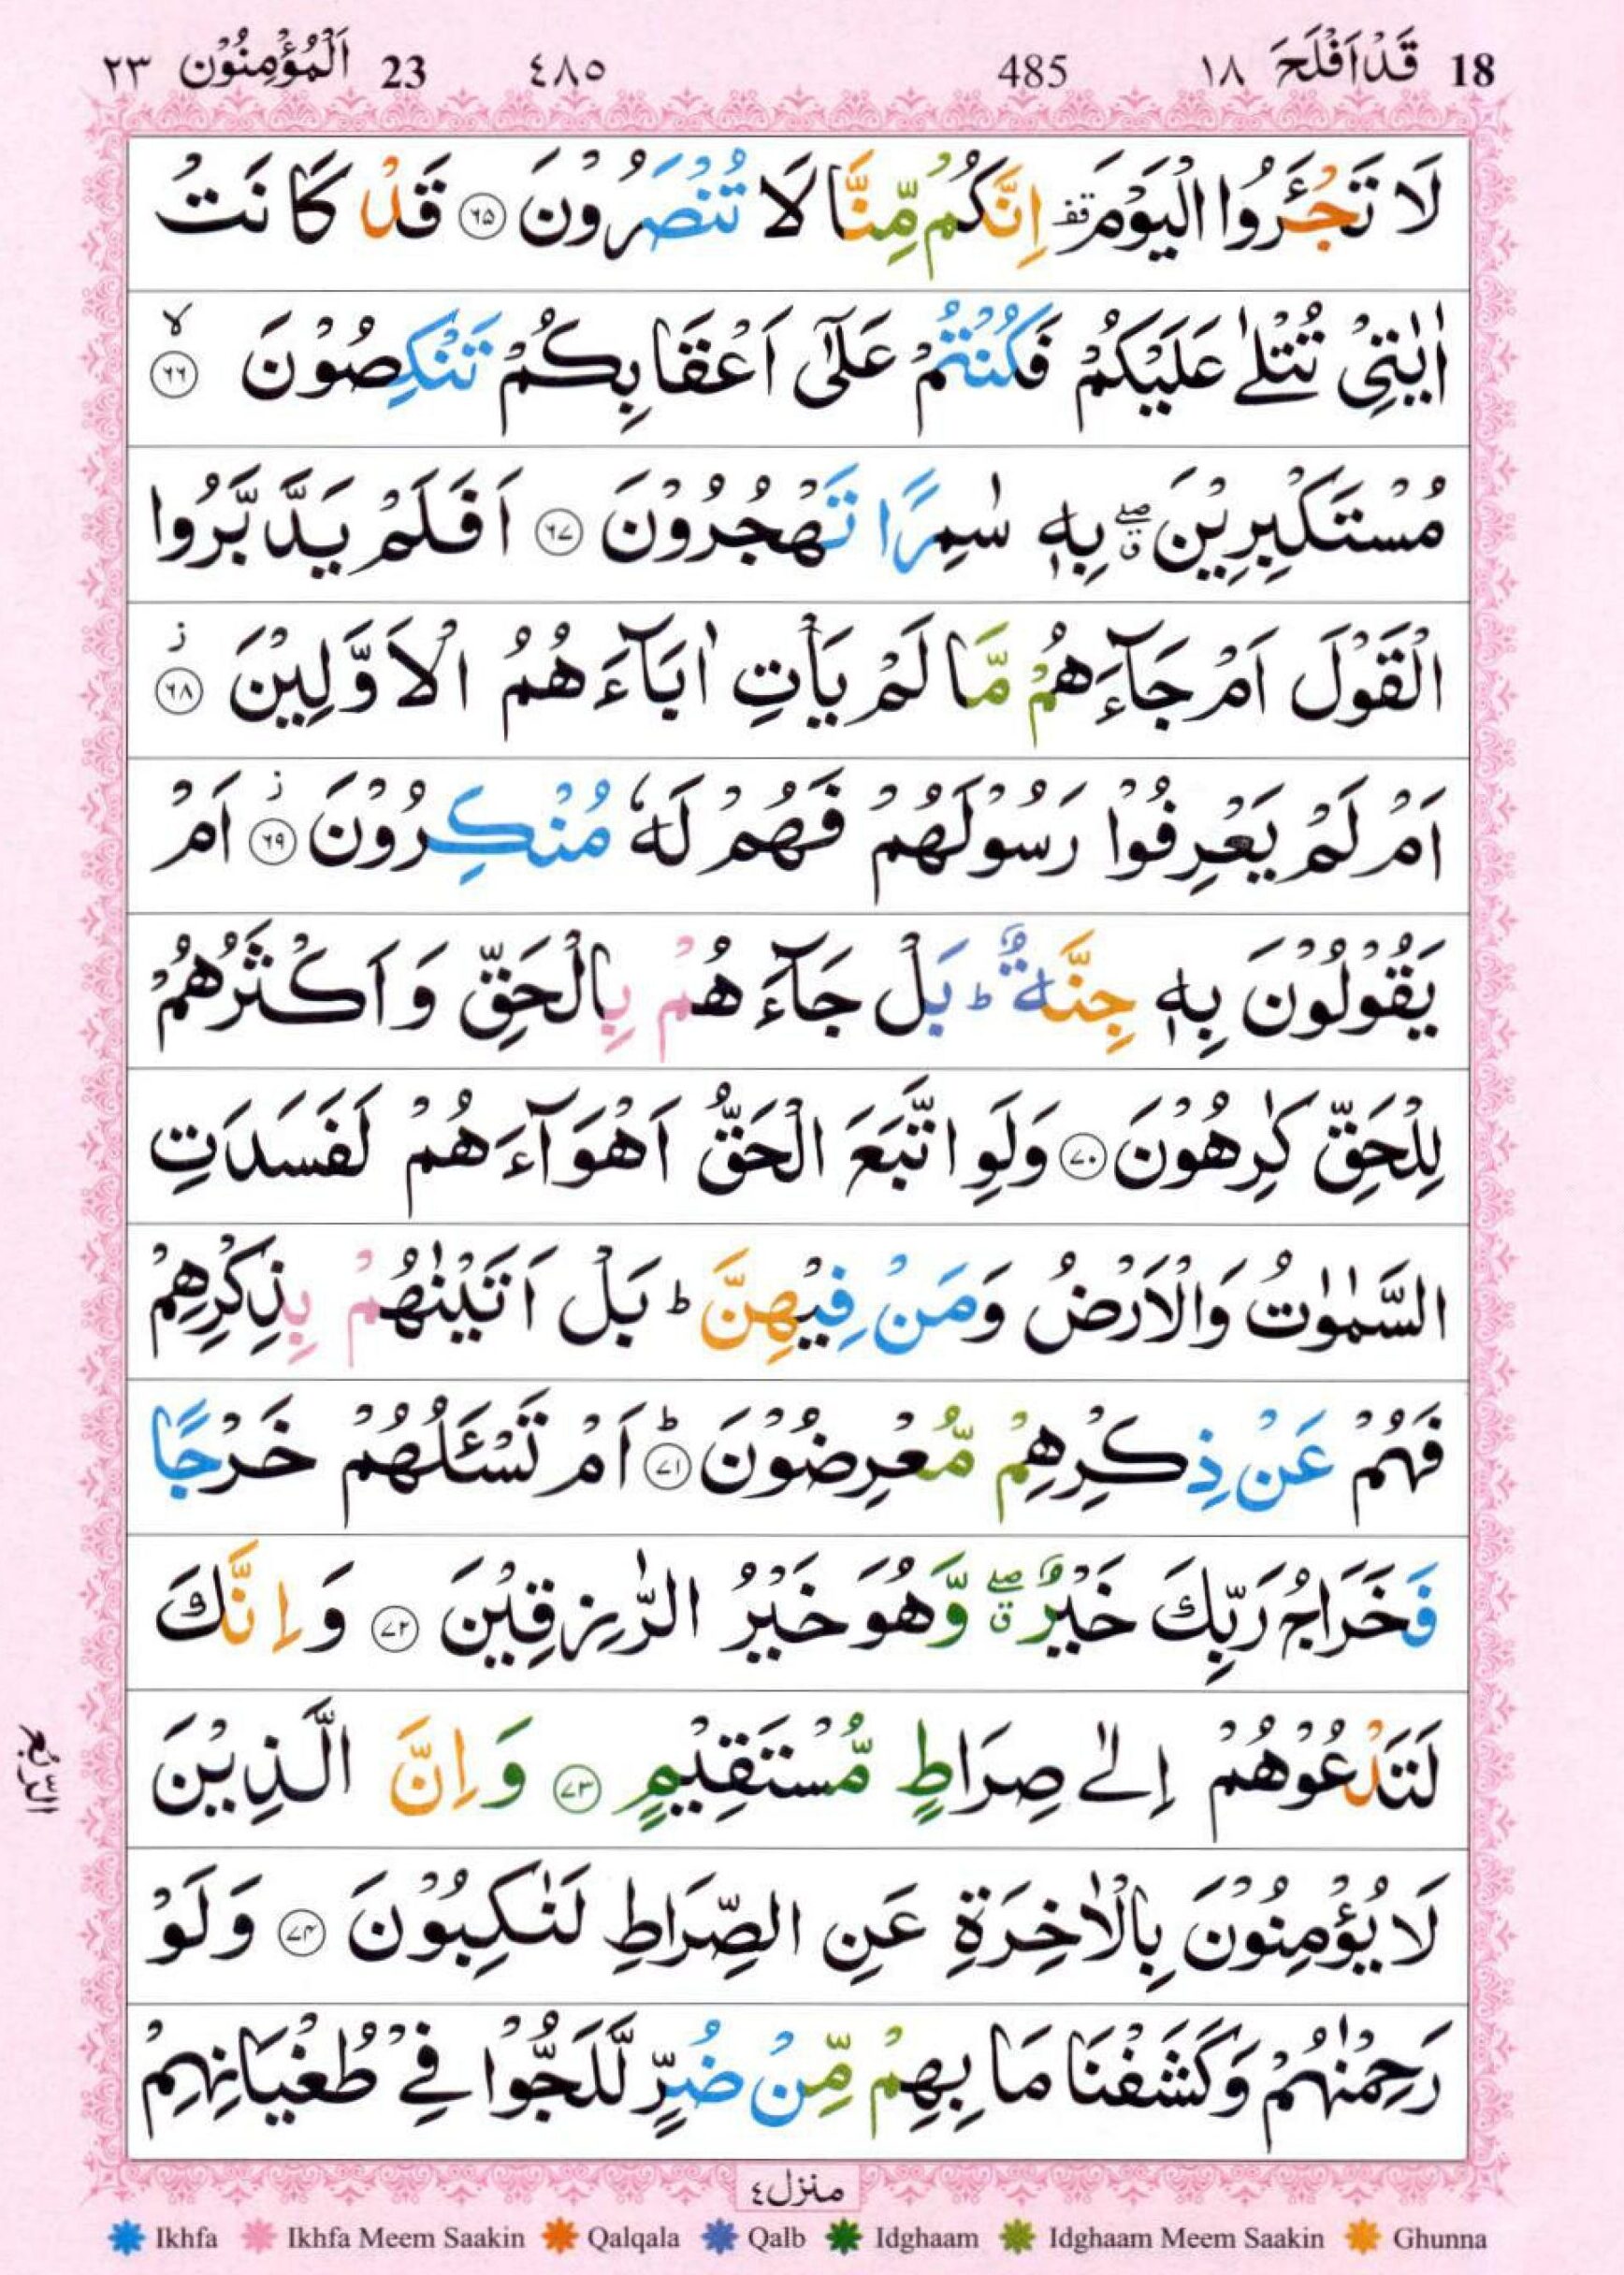 18 قَدْاَفْلَحَ ١٨ 485 ٤٨٥ 23 اَلْمُؤْمِنُوْن ٢٣
لَا تَجْـَٔرُوا الْيَوْمَ ۫ اِنَّكُمْ مِّنَّا لَا تُنْصَرُوْنَ ﴿۶۵﴾ قَدْ كَانَتْ
اٰيٰتِىْ تُتْلٰى عَلَيْكُمْ فَكُنْتُمْ عَلٰٓى اَعْقَابِكُمْ تَنْكِصُوْنَ ﴿۶۶﴾ ۙ
مُسْتَكْبِرِيْنَ ۖۗ بِهٖ سٰمِرًا تَهْجُرُوْنَ ﴿۶۷﴾ اَفَلَمْ يَدَّبَّرُوا
الْقَوْلَ اَمْ جَآءَهُمْ مَّا لَمْ يَاْتِ اٰبَآءَهُمُ الْاَوَّلِيْنَ ﴿۶۸﴾ ز
اَمْ لَمْ يَعْرِفُوْا رَسُوْلَهُمْ فَهُمْ لَهٗ مُنْكِرُوْنَ ز ﴿۶۹﴾ اَمْ
يَقُوْلُوْنَ بِهٖ جِنَّةٌ ۢ ؕ بَلْ جَآءَهُمْ بِالْحَقِّ وَاَكْثَرُهُمْ
لِلْحَقِّ كٰرِهُوْنَ ﴿۷۰﴾ وَلَوِ اتَّبَعَ الْحَقُّ اَهْوَآءَهُمْ لَفَسَدَتِ
السَّمٰوٰتُ وَالْاَرْضُ وَمَنْ فِيْهِنَّ ؕ بَلْ اَتَيْنٰهُمْ بِذِكْرِهِمْ
فَهُمْ عَنْ ذِكْرِهِمْ مُّعْرِضُوْنَ ﴿۷۱﴾ ؕ اَمْ تَسْـَٔلُهُمْ خَرْجًا
فَخَرَاجُ رَبِّكَ خَيْرٌ ۖۗ وَّهُوَ خَيْرُ الرّٰزِقِيْنَ ﴿۷۲﴾ وَاِنَّكَ
لَتَدْعُوْهُمْ اِلٰى صِرَاطٍ مُّسْتَقِيْمٍ ﴿۷۳﴾ وَاِنَّ الَّذِيْنَ
الرّبع
لَا يُؤْمِنُوْنَ بِالْاٰخِرَةِ عَنِ الصِّرَاطِ لَنٰكِبُوْنَ ﴿۷۴﴾ وَلَوْ
رَحِمْنٰهُمْ وَكَشَفْنَا مَا بِهِمْ مِّنْ ضُرٍّ لَّلَجُّوْا فِىْ طُغْيَانِهِمْ
منزل٤
Ikhfa Ikhfa Meem Saakin Qalqala Qalb Idghaam Idghaam Meem Saakin Ghunna